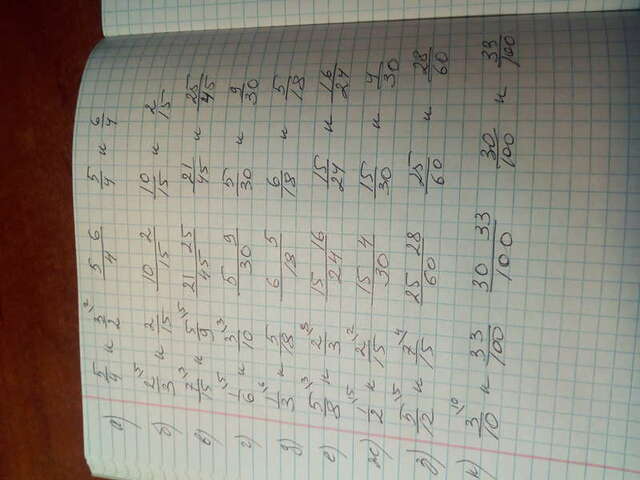 а) 5/4 и 3\2/2 5 6/4 5/4 и 6/4
б) 2\5/3 и 2/15 10 2/15 10/15 и 2/15
в) 7\3/15 и 5\5/9 21 25/45 21/45 и 25/45
г) 1\5/6 и 3\3/10 5 9/30 5/30 и 9/30
д) 1\6/3 и 5/18 6 5/18 6/18 и 5/18
е) 5\3/8 и 2\8/3 15 16/24 15/24 и 16/24
ж) 1\15/2 и 2\2/15 15 4/30 15/30 и 4/30
з) 5\5/12 и 7\4/15 25 28/60 25/60 и 28/60
к) 3\10/10 и 33/100 30 33/100 30/100 и 33/100